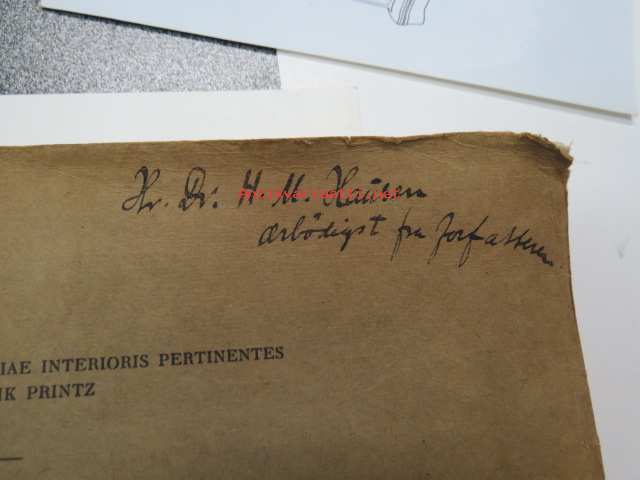 Hr. Dr: H. M. Hansen
ærbödigst fra Forfatteren
IAE INTERIORIS PERTINENTES
NK PRINTZ